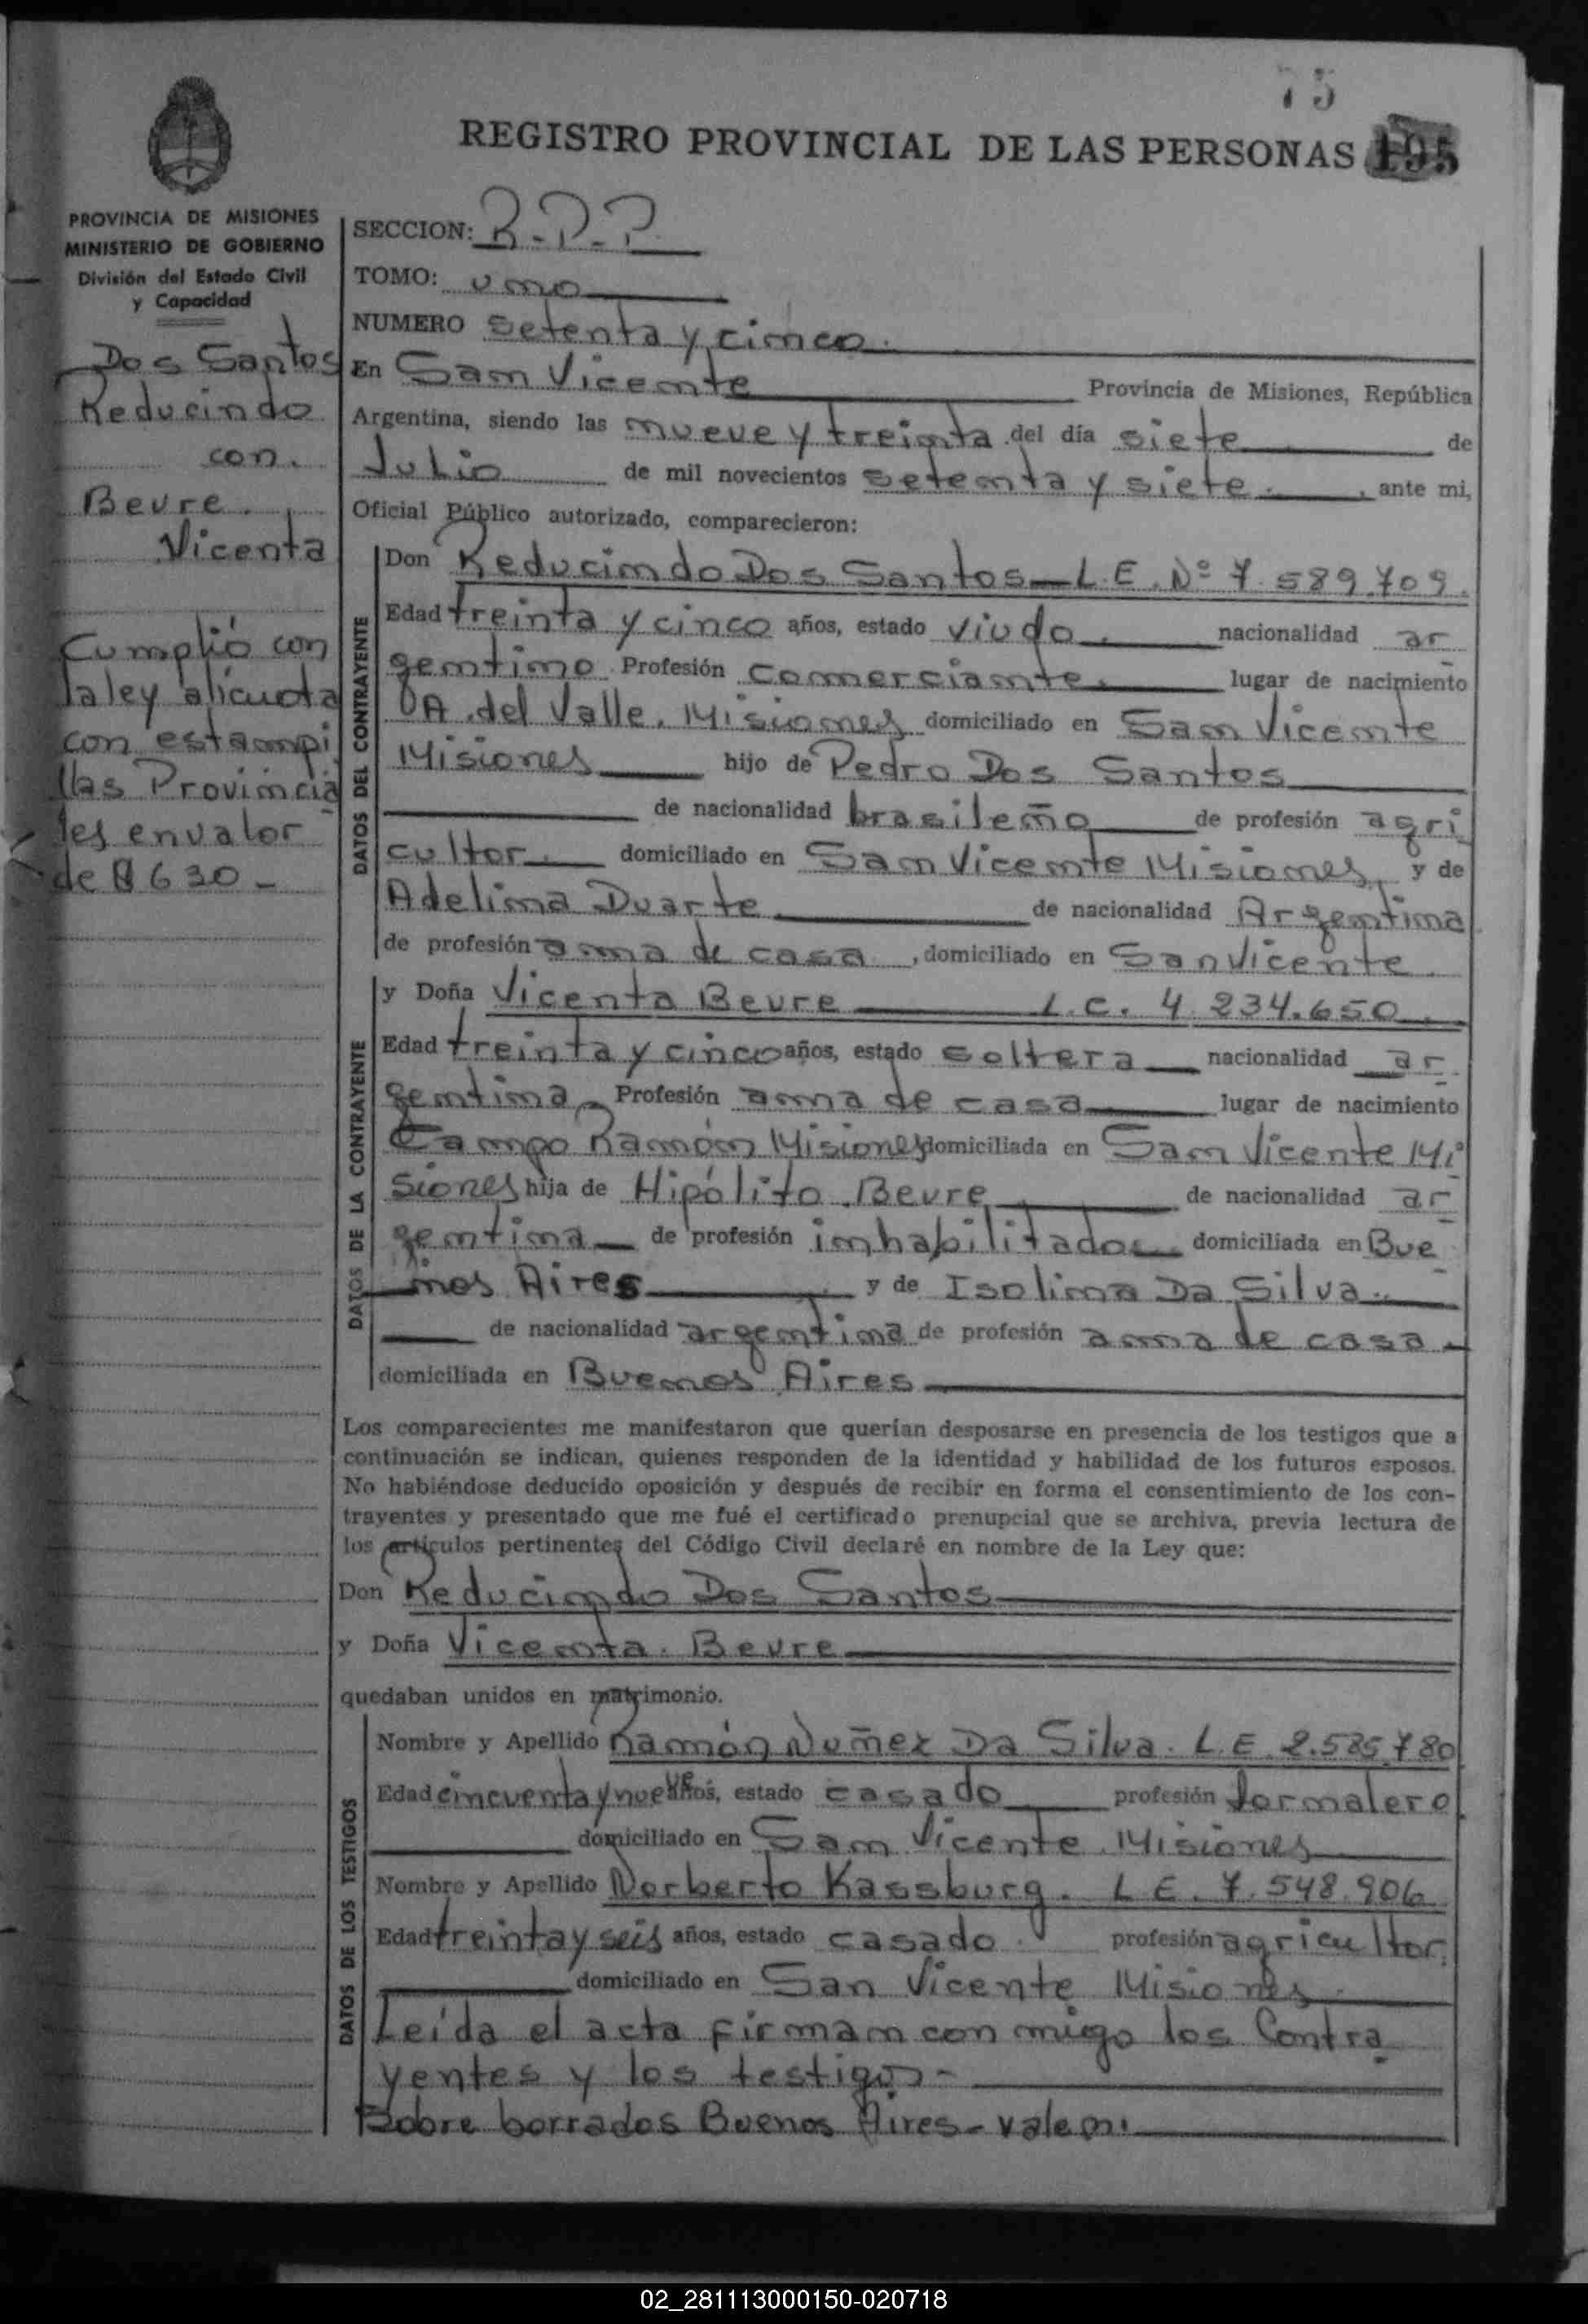 75
REGISTRO PROVINCIAL DE LAS PERSONAS 195
PROVINCIA DE MISIONES
MINISTERIO DE GOBIERNO
División del Estado Civil
y Capacidad
Dos Santos
Reducindo
con.
Bevre.
Vicenta
Cumplió con
la ley alícuota
con estampi
llas Provincia
les en valor
de $ 630-
SECCION: R.P.P.
TOMO: uno
NUMERO setenta y cinco.
En San Vicente Provincia de Misiones, República
Argentina, siendo las nueve y treinta del día siete de
Julio de mil novecientos setenta y siete. , ante mi,
Oficial Público autorizado, comparecieron:
DATOS DEL CONTRAYENTE
Don Reducindo Dos Santos L.E. Nº 7.589.709.
Edad treinta y cinco años, estado viudo. nacionalidad ar
gentino Profesión comerciante. lugar de nacimiento
del Valle. Misiones domiciliado en San Vicente
Misiones hijo de Pedro Dos Santos
de nacionalidad brasileño de profesión agri
cultor. domiciliado en San Vicente Misiones y de
Adelina Duarte de nacionalidad Argentina
de profesión ama de casa , domiciliado en San Vicente.
DATOS DE LA CONTRAYENTE
y Doña Vicenta Bevre L.C. 4.234.650.
Edad treinta y cinco años, estado soltera nacionalidad ar
gentina Profesión ama de casa lugar de nacimiento
Campo Ramón Misiones domiciliada en San Vicente Mi
siones hija de Hipólito Bevre de nacionalidad ar
gentina de profesión inhabilitado domiciliada en Bue
nos Aires y de Isolina Da Silva.
de nacionalidad argentina de profesión ama de casa
domiciliada en Buenos Aires
Los comparecientes me manifestaron que querían desposarse en presencia de los testigos que a
continuación se indican, quienes responden de la identidad y habilidad de los futuros esposos.
No habiéndose deducido oposición y después de recibir en forma el consentimiento de los con-
trayentes y presentado que me fué el certificado prenupcial que se archiva, previa lectura de
los artículos pertinentes del Código Civil declaré en nombre de la Ley que:
Don Reducindo Dos Santos
y Doña Vicenta Bevre
quedaban unidos en matrimonio.
DATOS DE LOS TESTIGOS
Nombre y Apellido Ramón Nuñez Da Silva. L.E. 2.585.780
Edad cincuenta y nueve años, estado casado profesión Jornalero
domiciliado en San Vicente Misiones
Nombre y Apellido Norberto Kassburg. L.E. 7.548.906
Edad treinta y seis años, estado casado profesión agricultor.
domiciliado en San Vicente Misiones
Leída el acta firman con migo los Contra
yentes y los testigos-
Sobre borrados Buenos Aires-valen.
02_281113000150-020718